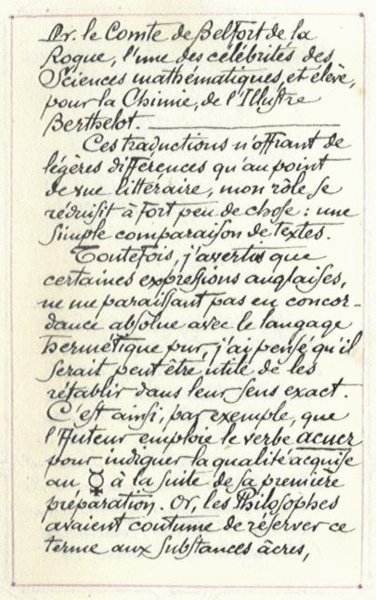 Mr. le Comte de Belfort de la
Roque, l'une des célébrités des
Sciences mathématiques, et élève,
pour la Chimie, de l'Illustre
Berthelot.
Ces traductions n'offrant de
légères différences qu'au point
de vue littéraire, mon rôle se
réduisit à fort peu de chose : une
simple comparaison de textes.
Toutefois, j'avertis que
certaines expressions anglaises,
ne me paraissant pas en concor-
dance absolue avec le langage
hermétique pur, j'ai pensé qu'il
serait peut être utile de les
rétablir dans leur sens exact.
C'est ainsi, par exemple, que
l'Auteur emploie le verbe acuer
pour indiquer la qualité acquise
au ☿ à la suite de sa première
préparation. Or, les Philosophes
avaient coutume de réserver ce
terme aux substances âcres,